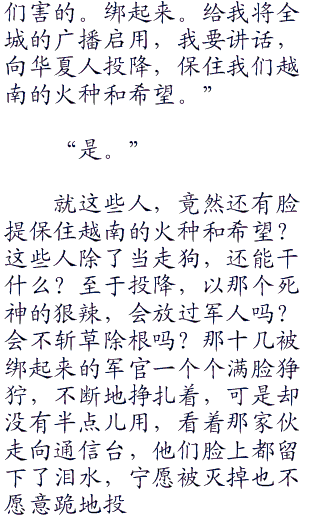 们害的。绑起来。给我将全
城的广播启用，我要讲话，
向华夏人投降，保住我们越
南的火种和希望。”
“是。”
就这些人，竟然还有脸
提保住越南的火种和希望？
这些人除了当走狗，还能干
什么？至于投降，以那个死
神的狠辣，会放过军人吗？
会不斩草除根吗？那十几被
绑起来的军官一个个满脸狰
狞，不断地挣扎着，可是却
没有半点儿用，看着那家伙
走向通信台，他们脸上都留
下了泪水，宁愿被灭掉也不
愿意跪地投